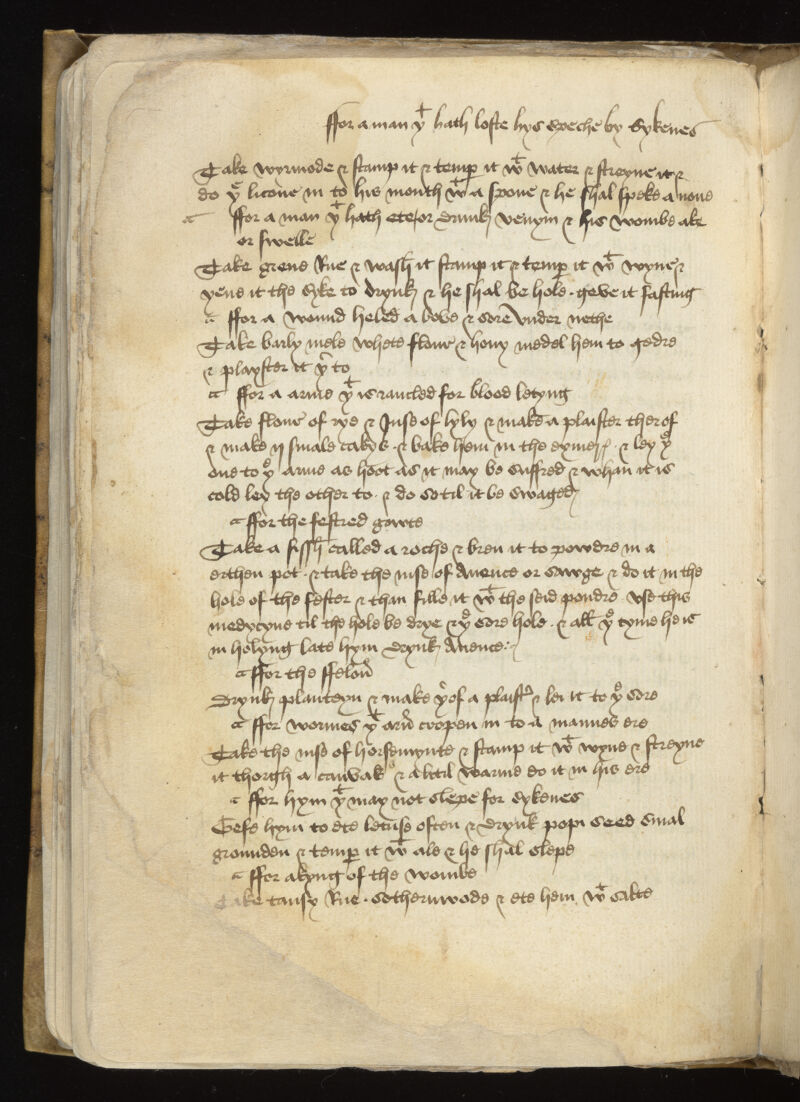 ffor a man yͭ hath loste hys speche by Sykenes
Take wyrmode & stamp it & temp it wͭ water & streyne it &
do yͤ licoure in to his mouth wͭ a spone & he shal speke a none
ffor a man yͭ hath ete or drunk venym & his wombe ake
or swelle
Take grene Rue & wash it stamp it & temp it wͭ wyne &
yeue it the syke to drynk & he shal be hole · geve it fasting
ffor a wound heled a bove & sore vnder nethe
Take barly mele whete flour & hony medel hem to gedre
& playster it yͬ to
ffor a arme yͭ is rancled for blood letyng
Take flour of rye & Juse of lyly & make a plaister ther of
& make ij smale cakys · & bake hem in the eymeꝭ · & ley yͤ
one to yͤ arme as hoot as it may be suffred & whan it is
cold ley the other to · & do so til it be swaged
ffor the festred gowte
Take a fissh called a roche & bren it to powdre in a
erthen pot · & take the iuse of Auence or sawge & do it in the
hole of the fester & than fille it wͭ the seid poudre vse this
medycyne til the hole be drye & yͤ sore hole · & all yͤ tyme he is
in helyng late hym drynk Auence :
ffor the ffelon
Drynk planteyn & make yͬof a plaistͬ & lei it to yͤ sore
ffor wormes yͭ arn cropen in to a mannes ere
Take the iuse of horsemynte & stamp it wͭ wyne & streyne
it thorgh a canvas & a litil warme do it in his ere
ffor hym yͭ may not slepe for sykenes
Gefe hym to ete letuse often & drynk popi seed smal
grounden & temp it wͭ ale & he shal slepe
ffor akyng of the wombe
Take tansy Rue · sothernwode & ete hem wͭ salte